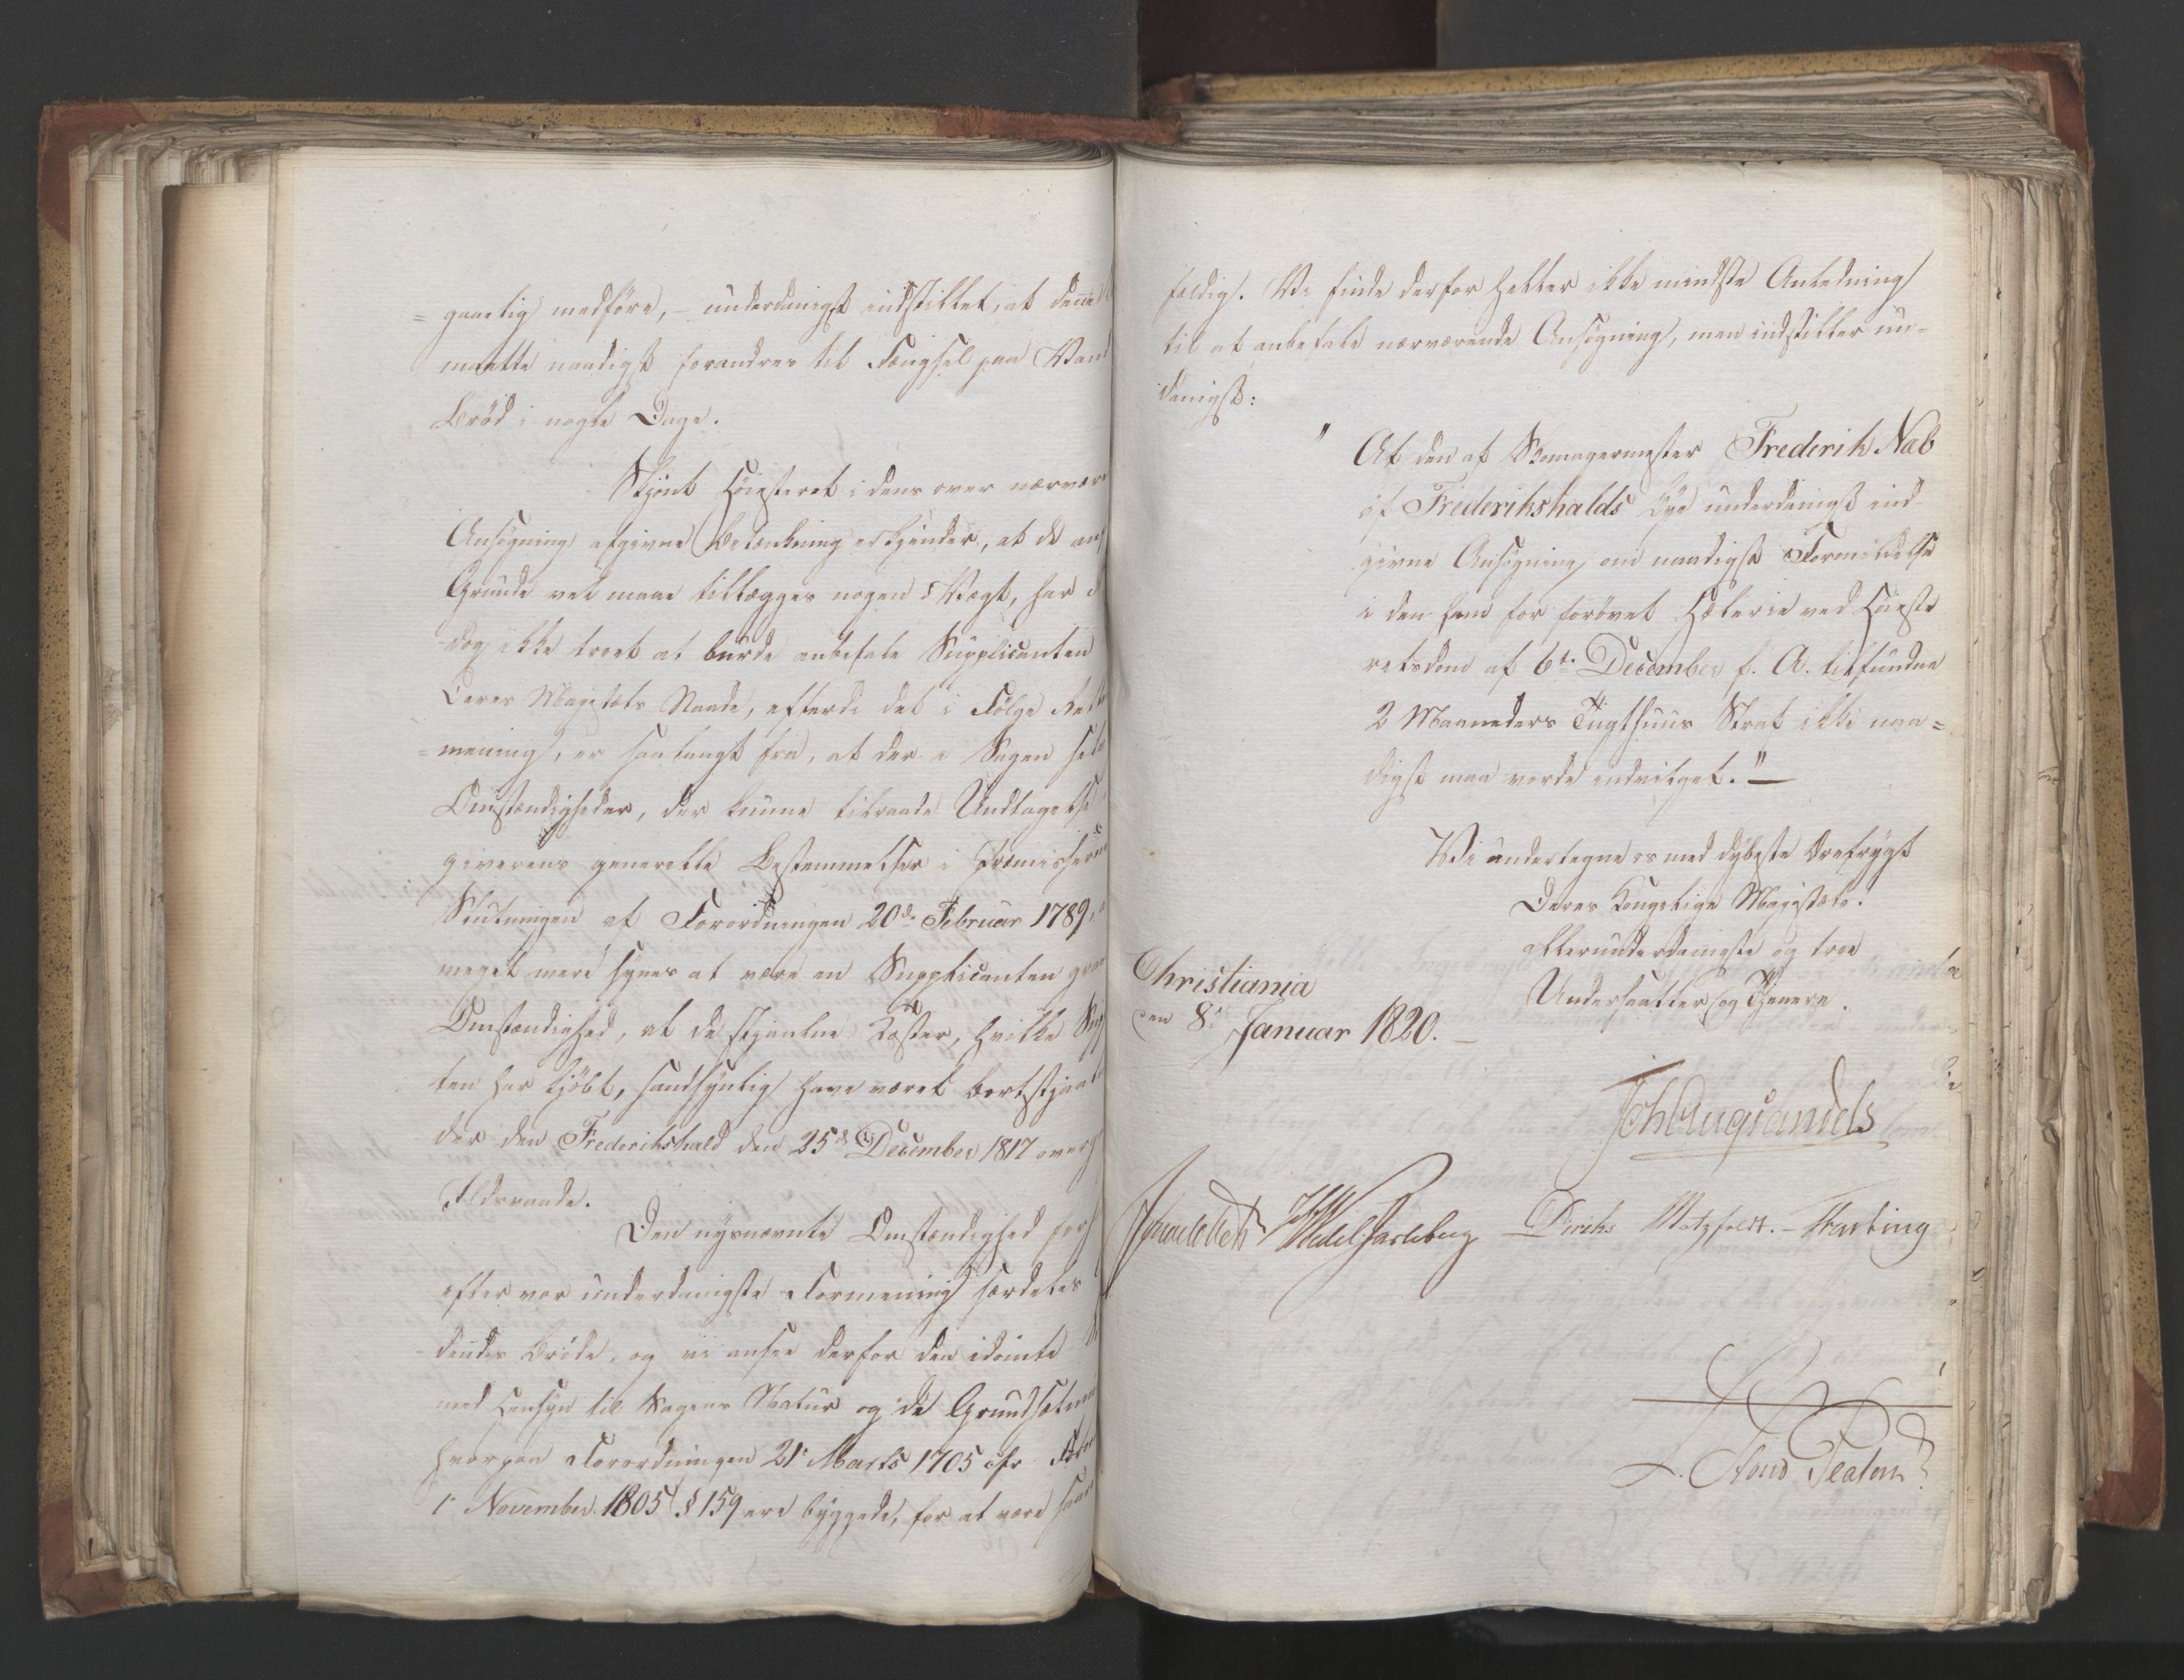 = gaaelig medføre, – underdanigst indstillet, at denne
maatte naadigst forandres til Fængsel paa Vand
Brød i nogle Dage.
Skjønt Høiesteret i dens over nærvær
Ansøgning afgivne Betænkning erkjender, at de anf
Grunde vel maae tillægges nogen Vægt, har d
dog ikke troet at burde anbefale Supplicanten
Deres Majestæts Naade, efterdi det i Følge Rett
= mening, er saalangt fra, at der i Sagen
Omstændigheder, der kunne tilraade Undtagelse
giverens generelle Bestemmelser i Præmisserne
Slutningen af Forordningen 20de Februar 1789,
meget mere synes at være en Supplicanten grav
Omstændighed, at de stjaalne Koster, hvilke Sup
ten har kjøbt, sandsynlig have været bortstjaal
der den Frederikshald den 25de December 1817 overg
Ildsvaade.
Den nysnævnte Omstændighed for
efter vor underdanigste Formening særdeles
dendes Brøde, og vi ansee derfor den idømte
med Hensyn til Sagens Natur og de Grundsætnin
hvorpaa Forordningen 21 Marts 1705 cfr
1 November 1805 § 159 ere byggede, for at være
fældig. Vi finde derfor heller ikke mindste Anledning
til at anbefale nærværende Ansøgning, men indstiller un=
danigst:
" At den af Skomagermester Frederik Næb
af Frederikshalds Bye underdanigst ind
givne Ansøgning om naadigst Formildelse
i den ham for forøvet Hæleri ved Høieste
retsdom af 6te December f. A. tilfundne
2 Maaneders Tugthuus Straf ikke naa=
digst maa vorde indvilget." –
Vi undertegne os med dybeste Ærefrygt
Deres Kongelige Majestæts.
allerunderdanigste og troe
Undersaatter og Tjenere.
Christiania
den 8 Januar 1820. –
Joh Aug Sandels
Wedel Jarlsberg Diriks Motzfeldt. – Fasting
L. Stoud Platou